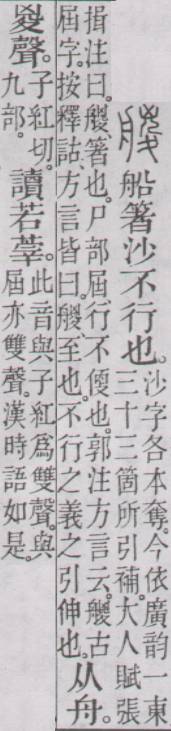 艐 船箸沙不行也。
沙字各本奪。今依廣韵一東
三十三箇所引補。大人賦張
揖注曰。艐、箸也。尸部屆、行不便也。郭注方言云。艐古
屆字。按釋詁、方言皆曰。艐、至也。不行之義之引伸也。
从舟。
㚇聲。
子紅切。
九部。
讀若莘。
此音與子紅爲雙聲。與
屆亦雙聲。漢時語如是。